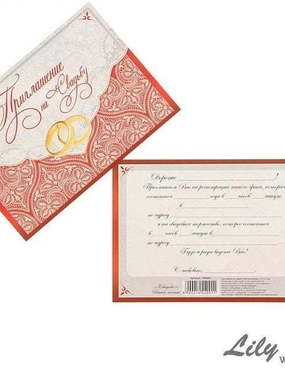 Приглашение
на Свадьбу
Дорогие !
Приглашаем Вас на регистрацию нашего брака, которая
состоится года в часов минут
в
по адресу:
и на свадебное торжество, которое состоится
в часов минут в
по адресу:
Будем рады видеть Вас!
С любовью
Lily
W